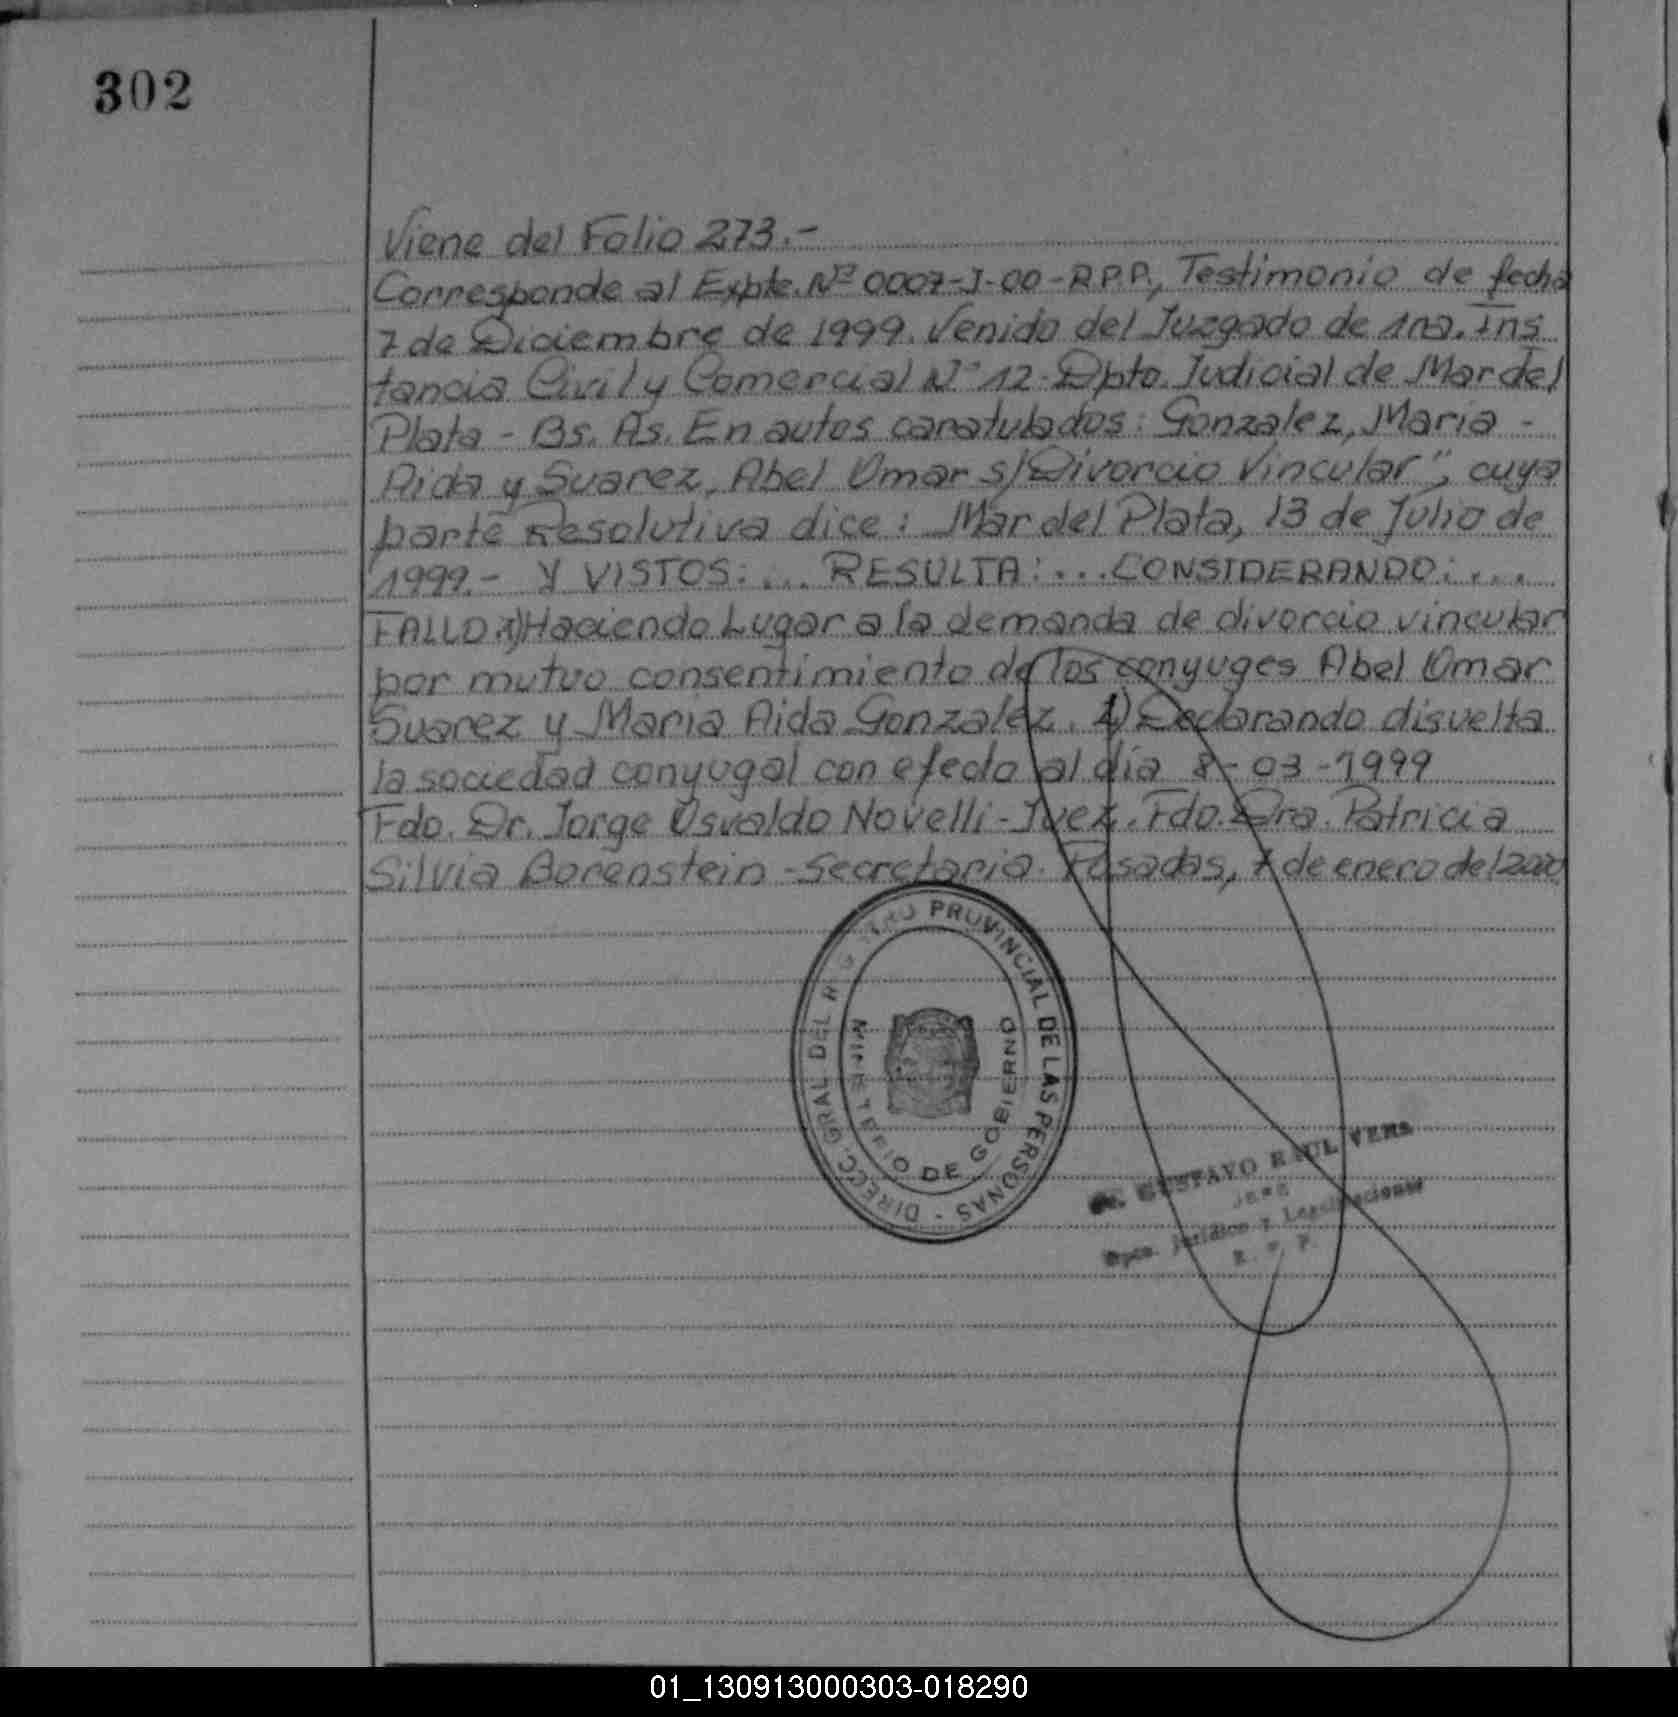 302
Viene del Folio 273.-
Corresponde al Expte. Nº 0007-J-00-R.P.P., Testimonio de fecha
7 de Diciembre de 1999. Venido del Juzgado de 1ra. Ins
tancia Civil y Comercial Nº 12 - Dpto. Judicial de Mar del
Plata - Bs. As. En autos caratulados: Gonzalez, Maria -
Aida y Suarez, Abel Omar s/Divorcio Vincular", cuya
parte Resolutiva dice: Mar del Plata, 13 de Julio de
1999.- Y VISTOS:... RESULTA:... CONSIDERANDO:...
FALLO 1) Haciendo Lugar a la demanda de divorcio vincular
por mutuo consentimiento de los conyuges Abel Omar
Suarez y Maria Aida Gonzalez. 2) Declarando disuelta
la sociedad conyugal con efecto al dia 8-03-1999
Fdo. Dr. Jorge Osvaldo Novelli - Juez. Fdo. Dra. Patricia
Silvia Borenstein - Secretaria. Posadas, 7 de enero del 2000
DIRECC. GRAL DEL PROVINCIAL DE LAS PERSONAS -
DE GOBIERNO
GUSTAVO RAUL VERA
JEFE
Dpto. Jurídico y
01_130913000303-018290